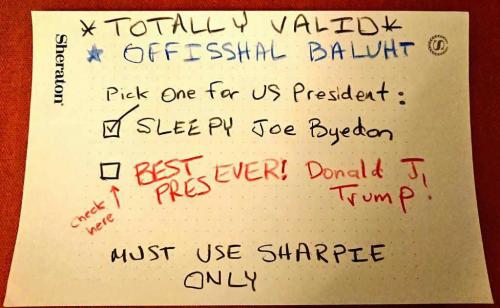 *TOTALLY VALID*
* OFFISSHAL BALUHT
Sheraton
Pick One for US President:
SLEEPY Joe Byedon
BEST PRES EVER! Donald J. Trump!
check here
MUST USE SHARPIE
ONLY